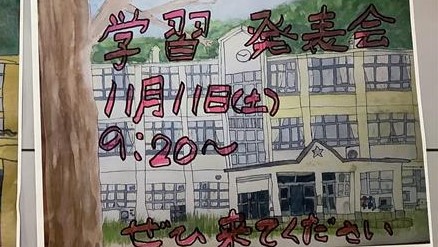 学習 発表会
11月11日(土)
9:20～
ぜひ来てください